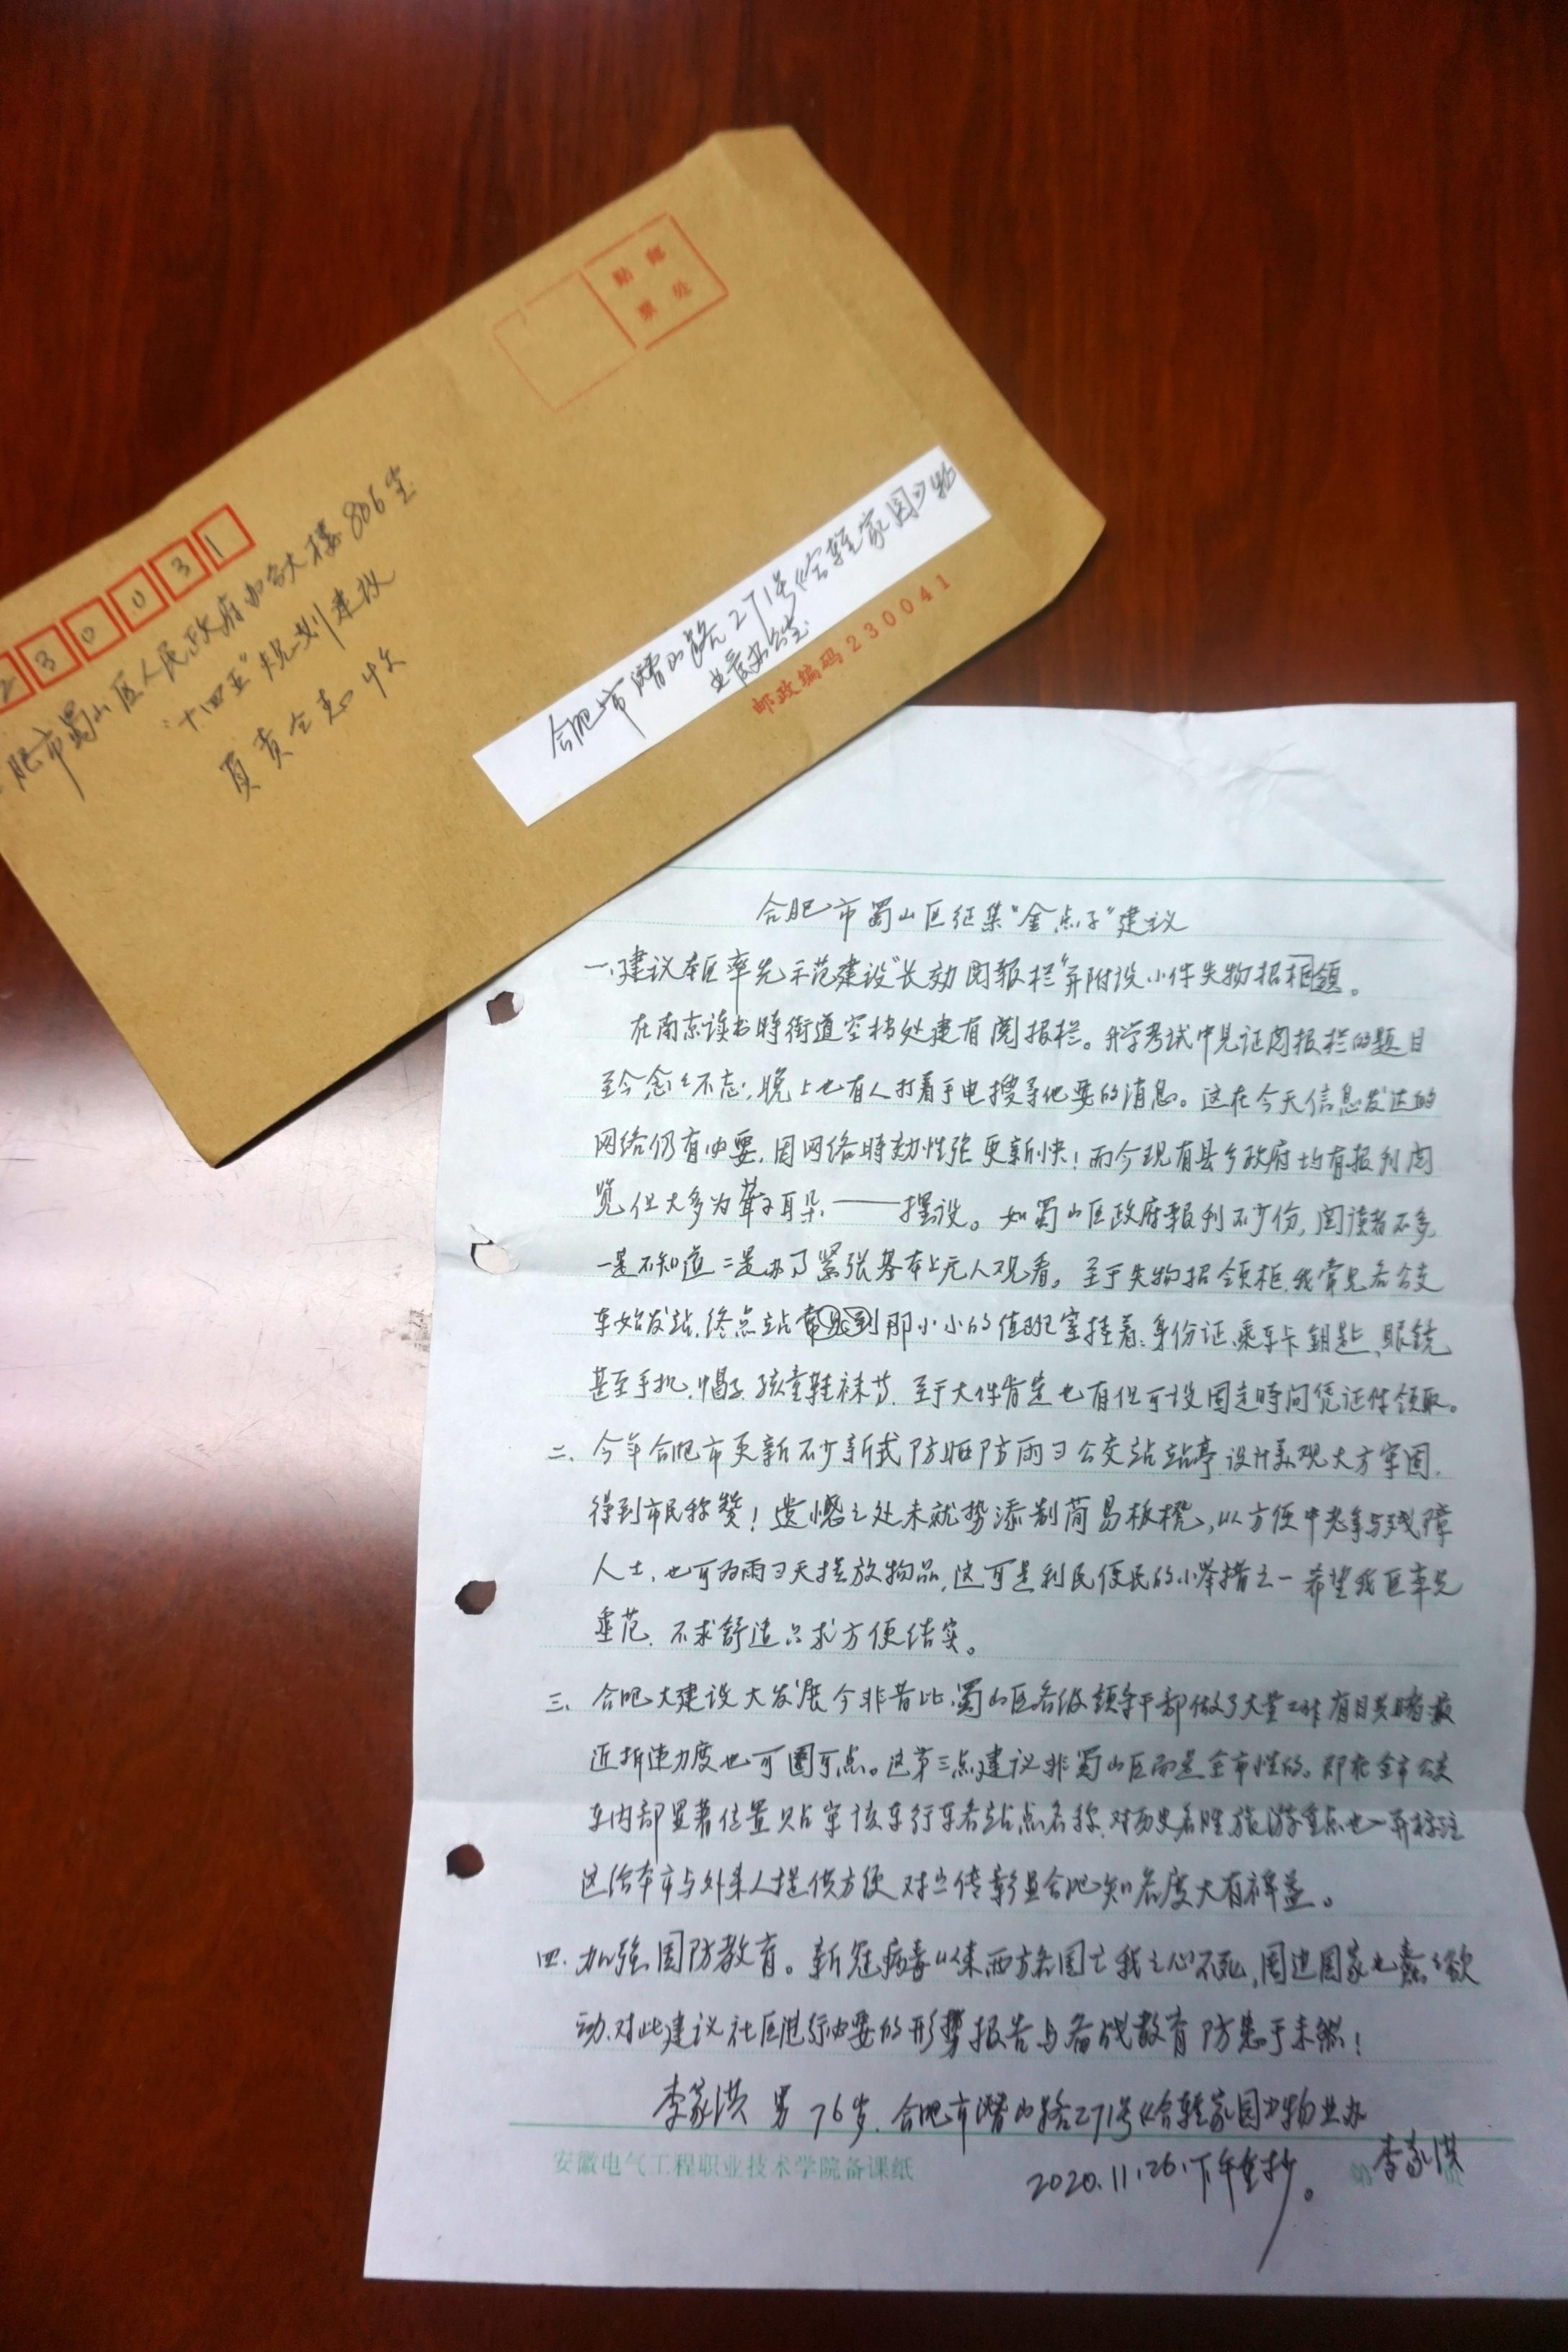 贴邮
票处
230031
肥市蜀山区人民政府办公大楼806室
"十四五"规划建议
夏责全志 收
合肥市潜山路271号《合轻家园》物
业管办公室
邮政编码230041
合肥市蜀山区征集"金点子"建议
一、建议本区率先示范建设"长效阅报栏"并附设小件失物招领。
在南京读书時街道空档处建有阅报栏。升学考试中见证阅报栏的题目
至今念念不忘；晚上也有人打着手电搜寻他要的消息。这在今天信息发达的
网络仍有必要，因网络時效性强更新快！而今现有县乡政府均有报刊阅
览但大多为聋子耳朵——摆设。如蜀山区政府報刊不少份，阅读者不多，
一是不知道二是办了紧张基本上无人观看。至于失物招领柜，我常见各公交
车始发站、终点站常见到那小小的值班室挂着：身份证、乘车卡、钥匙、眼镜
甚至手机、帽子、孩童鞋袜节，至于大件肯定也有但可设固定時间凭证件领取。
二、今年合肥市更新不少新式防晒防雨日公交站站亭，设计美观大方牢固，
得到市民称赞！遗憾之处未就势添制简易板櫈，以方便中老年与残障
人士，也可为雨日天摆放物品，这可是利民便民的小举措之一希望我区率先
垂范，不求舒适只求方便结实。
三、合肥大建设大发展今非昔比，蜀山区各级领导干部做了大量工作有目共睹，最
近拆违力度也可圈可点。这第三点建议非蜀山区而是全市性的。即在全市公交
车内部显著位置贴牢该车行车各站点名称，对历史名胜旅游重点也一并标注
这给本市与外来人提供方便，对宣传彰显合肥知名度大有裨益。
四、加强国防教育。新冠病毒以来西方各国亡我之心不死，周边国家也蠢蠢欲
动，对此建议社区进行必要的形势报告与备战教育防患于未然！
李家洪 男 76岁，合肥市潜山路271号《合轻家园》物业办
李家洪
2020.11.26.下午重抄。
安徽电气工程职业技术学院备课纸